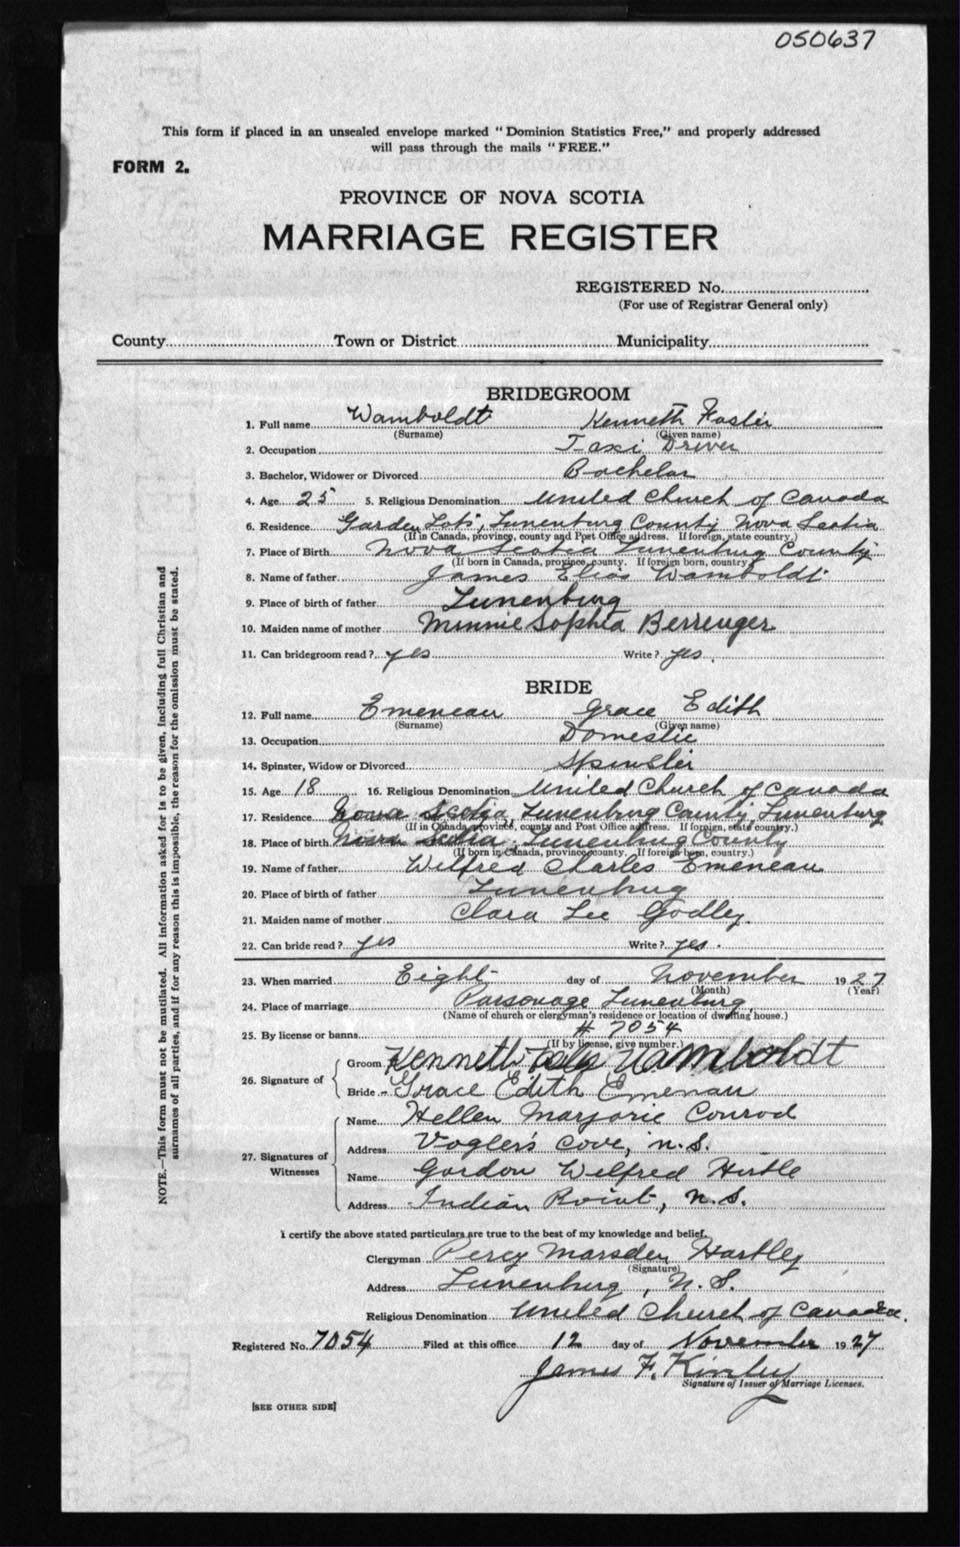 050637
This form if placed in an unsealed envelope marked "Dominion Statistics Free," and properly addressed
will pass through the mails "FREE."
FORM 2.
PROVINCE OF NOVA SCOTIA
MARRIAGE REGISTER
REGISTERED No.
(For use of Registrar General only)
County Town or District Municipality
BRIDEGROOM
1. Full name Wamboldt Kenneth Foster
(Surname) (Given name)
2. Occupation Taxi Driver
3. Bachelor, Widower or Divorced Bachelor
4. Age 25 5. Religious Denomination United Church of Canada
6. Residence Garden Lots, Lunenburg County Nova Scotia
(If in Canada, province, county and Post Office address. If foreign, state country.)
7. Place of Birth Nova Scotia Lunenburg County
(If born in Canada, province, county. If foreign born, country.)
8. Name of father James Elias Wamboldt
9. Place of birth of father Lunenburg
10. Maiden name of mother Minnie Sophia Berringer
11. Can bridegroom read? yes Write? yes.
BRIDE
12. Full name Emeneau Grace Edith
(Surname) (Given name)
13. Occupation Domestic
14. Spinster, Widow or Divorced Spinster
15. Age 18 16. Religious Denomination United Church of Canada
17. Residence Nova Scotia, Lunenburg County, Lunenburg
(If in Canada, province, county and Post Office address. If foreign, state country.)
18. Place of birth Nova Scotia, Lunenburg County
(If born in Canada, province, county. If foreign born, country.)
19. Name of father Wilfred Charles Emeneau
20. Place of birth of father Lunenburg
21. Maiden name of mother Clara Lee Godley.
22. Can bride read? yes Write? yes.
23. When married Eight day of November 1927
(Month) (Year)
24. Place of marriage Parsonage Lunenburg
(Name of church or clergyman's residence or location of dwelling house.)
25. By license or banns # 7054
(If by license, give number.)
26. Signature of Groom Kenneth Wamboldt
Bride Grace Edith Emenau
27. Signatures of Witnesses Name Hellen Marjorie Conrod
Address Voglers Cove, N.S.
Name Gordon Wilfred Hirtle
Address Indian Point, N.S.
I certify the above stated particulars are true to the best of my knowledge and belief.
Clergyman Percy Marsden Hartley
(Signature)
Address Lunenburg, N.S.
Religious Denomination United Church of Canada.
Registered No. 7054 Filed at this office 12 day of November 1927
James F. Kinley
Signature of Issuer of Marriage Licenses.
[SEE OTHER SIDE]
NOTE.—This form must not be mutilated. All information asked for is to be given, including full Christian and
surnames of all parties, and if for any reason this is impossible, the reason for the omission must be stated.